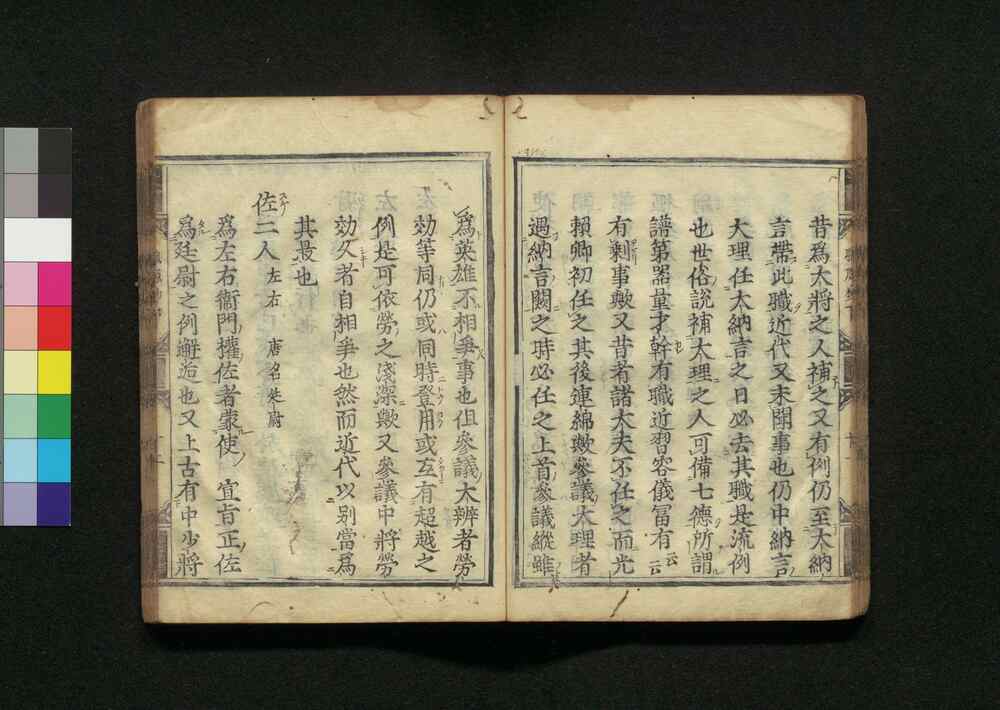 昔爲大將之人補之又有例仍至大納
言帶此職近代又未聞事也仍中納言
大理任大納言之日必去其職是流例
也世俗說補大理之人可備七德所謂
譜第器量才幹有職近習容儀冨有云云
有剩事歟又昔者諸大夫不任之而光
賴卿初任之其後連綿歟參議大理者
過納言闕之時必任之上首參議縱雖
爲英雄不相爭事也但參議大辨者勞
効等同仍或同時登用或互有超越之
例是可依勞之淺深歟又參議中將勞
効久者自相爭也然而近代以別當爲
其最也
佐二人 左右 唐名 尉
爲左右衞門權佐者蒙使宣旨正佐
爲廷尉之例邂逅也又上古有中少將